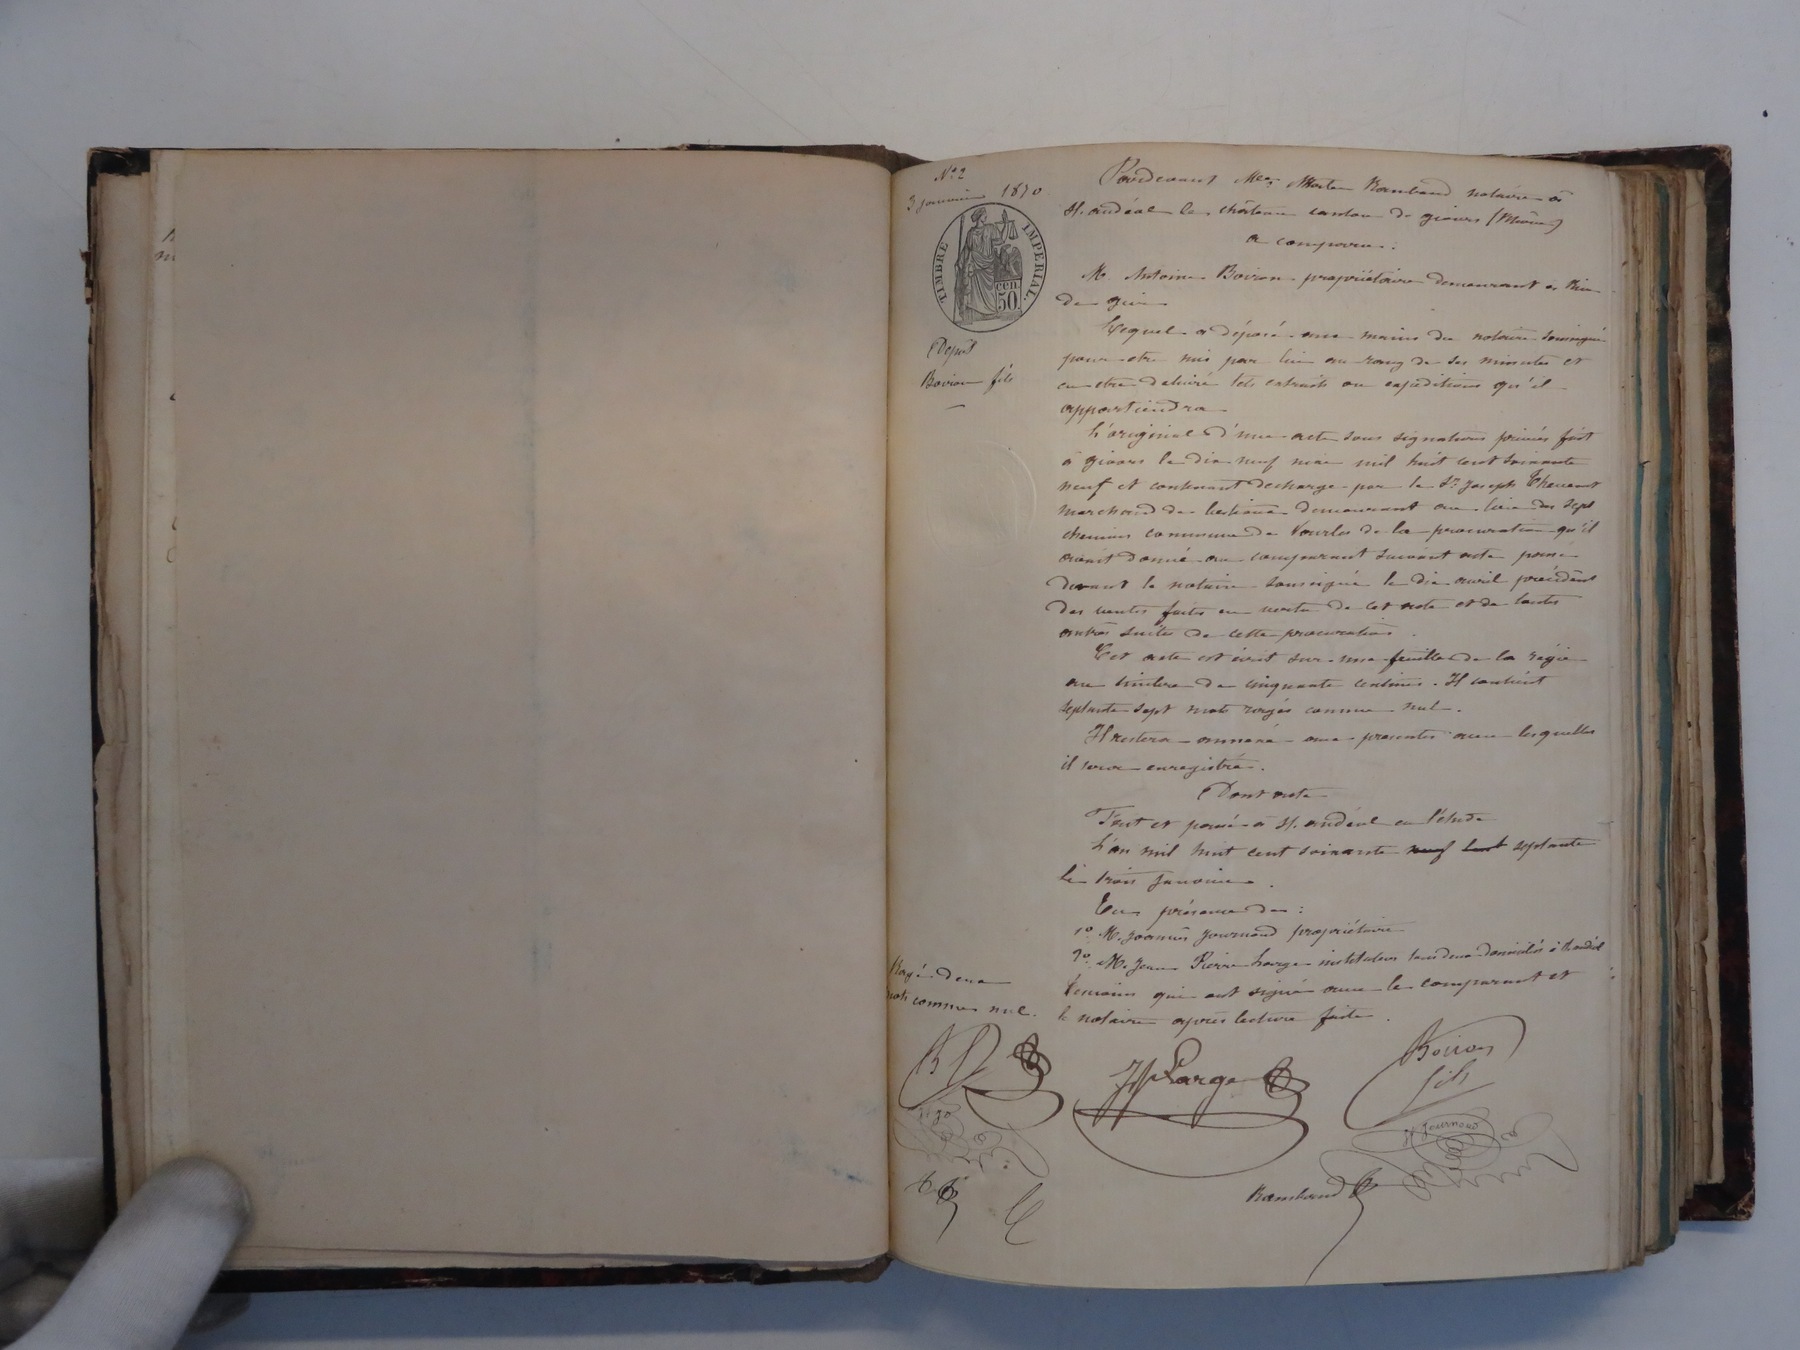 N° 2
3 janvier 1870
TIMBRE IMPERIAL.
50 cen.
Depôt
Boiron fils
Pardevant Me Rambaud notaire à
St. andéol le château canton de givors (Rhône)
a comparu :
M. Antoine Boiron propriétaire demeurant à Rive
de gier
Lequel a déposé aux mains du notaire soussigné
pour etre mis par lui au rang de ses minutes et
en etre delivré tels extraits ou expéditions qu'il
appartiendra
L'original d'un acte sous signatures privées fait
à givors le dix neuf mai mil huit cent soixante
neuf et contenant decharge par le Sr. Joseph Thevenet
marchand de bestiaux demeurant au lieu des sept
chemins commune de Vourles de la procuration qu'il
avait donné au comparant suivant acte passé
devant le notaire soussigné le dix avril précédent
des ventes faites en vertu de cet acte et de toutes
autres suites de cette procuration.
Cet acte est écrit sur une feuille de la régie
au timbre de cinquante centimes. Il contient
septante sept mots rayés comme nul.
Il restera annexé aux presentes avec lesquelles
il sera enregistré.
Dont acte
Fait et passé à St. andéol en l'étude
L'an mil huit cent soixante neuf cent septante
le trois janvier.
En présence de :
1° M. Joannès Journoud propriétaire
2° M. Jean Pierre Large instituteur tous deux domiciliés à St. andéol
témoins qui ont signé avec le comparant et
le notaire après lecture faite.
Rayé deux
mots comme nul.
JP Large
Boiron
fils
J Journoud
Rambaud